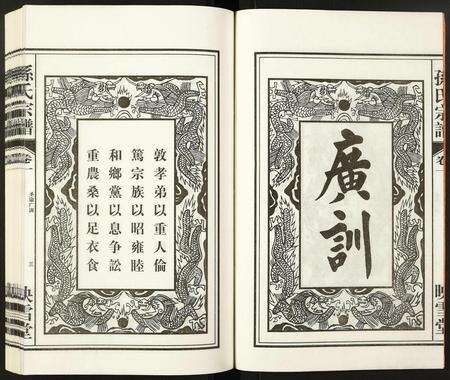 孫氏宗譜
卷一
映雪堂
廣訓
敦孝弟以重人倫
篤宗族以昭雍睦
和鄉黨以息争訟
重農桑以足衣食
孫氏宗譜
卷一
三
映雪堂